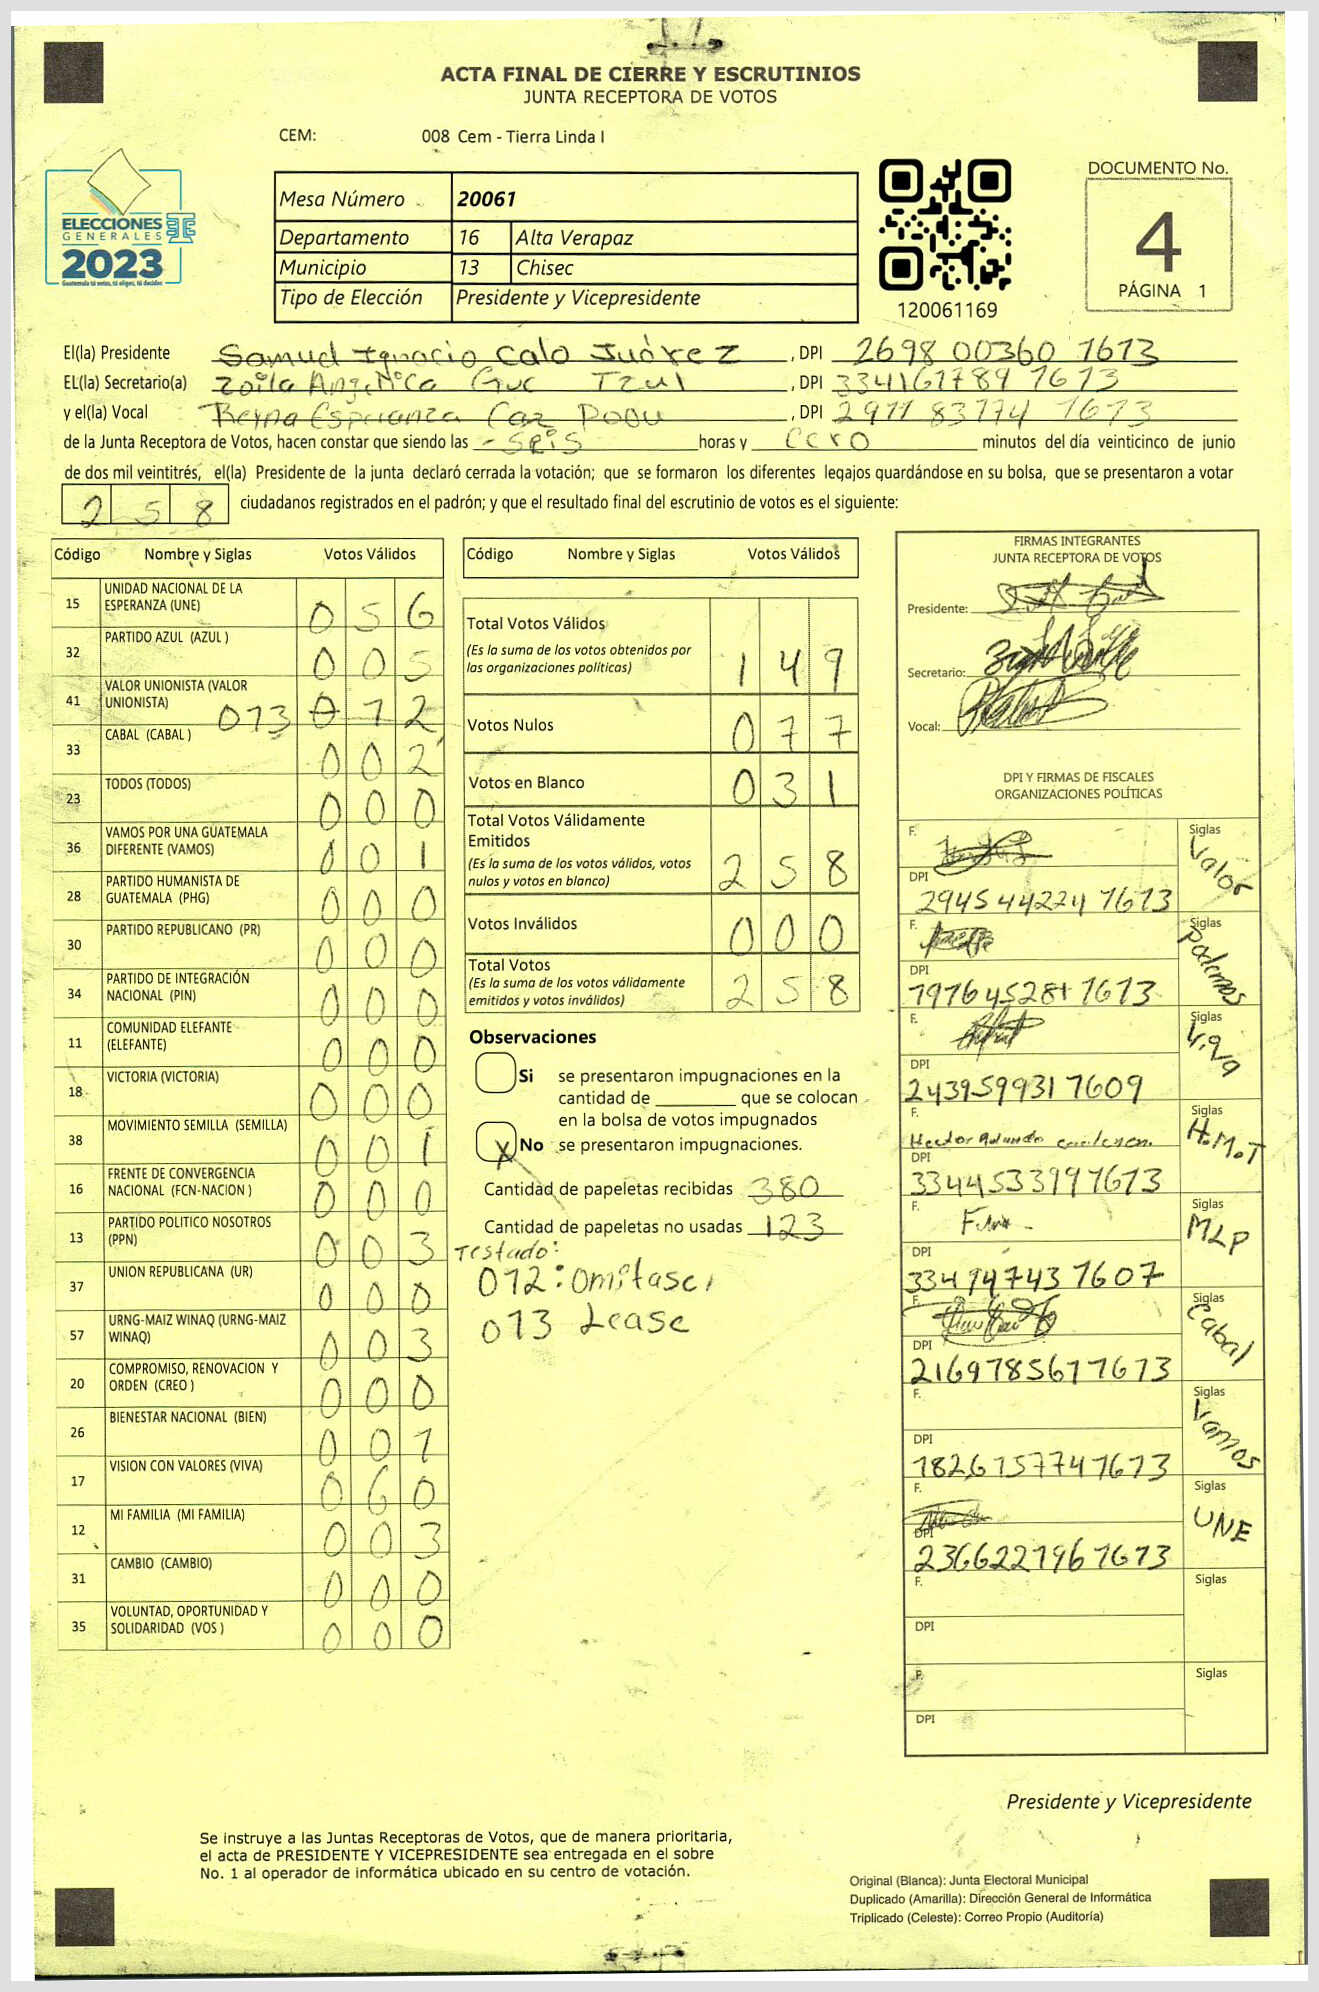 ACTA FINAL DE CIERRE Y ESCRUTINIOS
JUNTA RECEPTORA DE VOTOS
CEM: 008 Cem - Tierra Linda I
ELECCIONES
GENERALES
2023
Guatemala tú votas, tú eliges, tú decides
Mesa Número 20061
Departamento 16 Alta Verapaz
Municipio 13 Chisec
Tipo de Elección Presidente y Vicepresidente
120061169
DOCUMENTO No.
4
PÁGINA 1
El(la) Presidente Samuel Ignacio Calo Juárez , DPI 2698 00360 1613
EL(la) Secretario(a) Zoila Angelica Guc Tzul , DPI 334161789 1613
y el(la) Vocal Reyna Esperanza Caz , DPI 2911 83774 1613
de la Junta Receptora de Votos, hacen constar que siendo las seis horas y cero minutos del día veinticinco de junio
de dos mil veintitrés, el(la) Presidente de la junta declaró cerrada la votación; que se formaron los diferentes legajos quardándose en su bolsa, que se presentaron a votar
258 ciudadanos registrados en el padrón; y que el resultado final del escrutinio de votos es el siguiente:
Código Nombre y Siglas Votos Válidos
15 UNIDAD NACIONAL DE LA ESPERANZA (UNE) 056
32 PARTIDO AZUL (AZUL ) 005
41 VALOR UNIONISTA (VALOR UNIONISTA) 013 012
33 CABAL (CABAL ) 002
23 TODOS (TODOS) 000
36 VAMOS POR UNA GUATEMALA DIFERENTE (VAMOS) 001
28 PARTIDO HUMANISTA DE GUATEMALA (PHG) 000
30 PARTIDO REPUBLICANO (PR) 000
34 PARTIDO DE INTEGRACIÓN NACIONAL (PIN) 000
11 COMUNIDAD ELEFANTE (ELEFANTE) 000
18 VICTORIA (VICTORIA) 000
38 MOVIMIENTO SEMILLA (SEMILLA) 001
16 FRENTE DE CONVERGENCIA NACIONAL (FCN-NACION ) 000
13 PARTIDO POLITICO NOSOTROS (PPN) 003
37 UNION REPUBLICANA (UR) 000
57 URNG-MAIZ WINAQ (URNG-MAIZ WINAQ) 003
20 COMPROMISO, RENOVACION Y ORDEN (CREO ) 000
26 BIENESTAR NACIONAL (BIEN) 001
17 VISION CON VALORES (VIVA) 060
12 MI FAMILIA (MI FAMILIA) 003
31 CAMBIO (CAMBIO) 000
35 VOLUNTAD, OPORTUNIDAD Y SOLIDARIDAD (VOS ) 000
Código Nombre y Siglas Votos Válidos
Total Votos Válidos 149
(Es la suma de los votos obtenidos por
las organizaciones políticas)
Votos Nulos 077
Votos en Blanco 031
Total Votos Válidamente
Emitidos 258
(Es la suma de los votos válidos, votos
nulos y votos en blanco)
Votos Inválidos 000
Total Votos 258
(Es la suma de los votos válidamente
emitidos y votos inválidos)
Observaciones
Si se presentaron impugnaciones en la
cantidad de ________ que se colocan
en la bolsa de votos impugnados
X No se presentaron impugnaciones.
Cantidad de papeletas recibidas 380
Cantidad de papeletas no usadas 123
Testado:
012: omitase,
013 Lease
FIRMAS INTEGRANTES
JUNTA RECEPTORA DE VOTOS
Presidente:
Secretario:
Vocal:
DPI Y FIRMAS DE FISCALES
ORGANIZACIONES POLÍTICAS
F. Siglas Valor
DPI 2945 44224 1613
F. Siglas Podemos
DPI 1613
F. Siglas Viva
DPI 243959931 1609
F. Hector Rolando Siglas H.M.T
DPI 3344533991613
F. Siglas MLP
DPI 334947431607
F. Siglas Cabal
DPI 2169785611613
F. Siglas Vamos
DPI 1826157741613
F. Siglas UNE
DPI 2366221961613
F. Siglas
DPI
F. Siglas
DPI
Presidente y Vicepresidente
Se instruye a las Juntas Receptoras de Votos, que de manera prioritaria,
el acta de PRESIDENTE Y VICEPRESIDENTE sea entregada en el sobre
No. 1 al operador de informática ubicado en su centro de votación.
Original (Blanca): Junta Electoral Municipal
Duplicado (Amarilla): Dirección General de Informática
Triplicado (Celeste): Correo Propio (Auditoría)